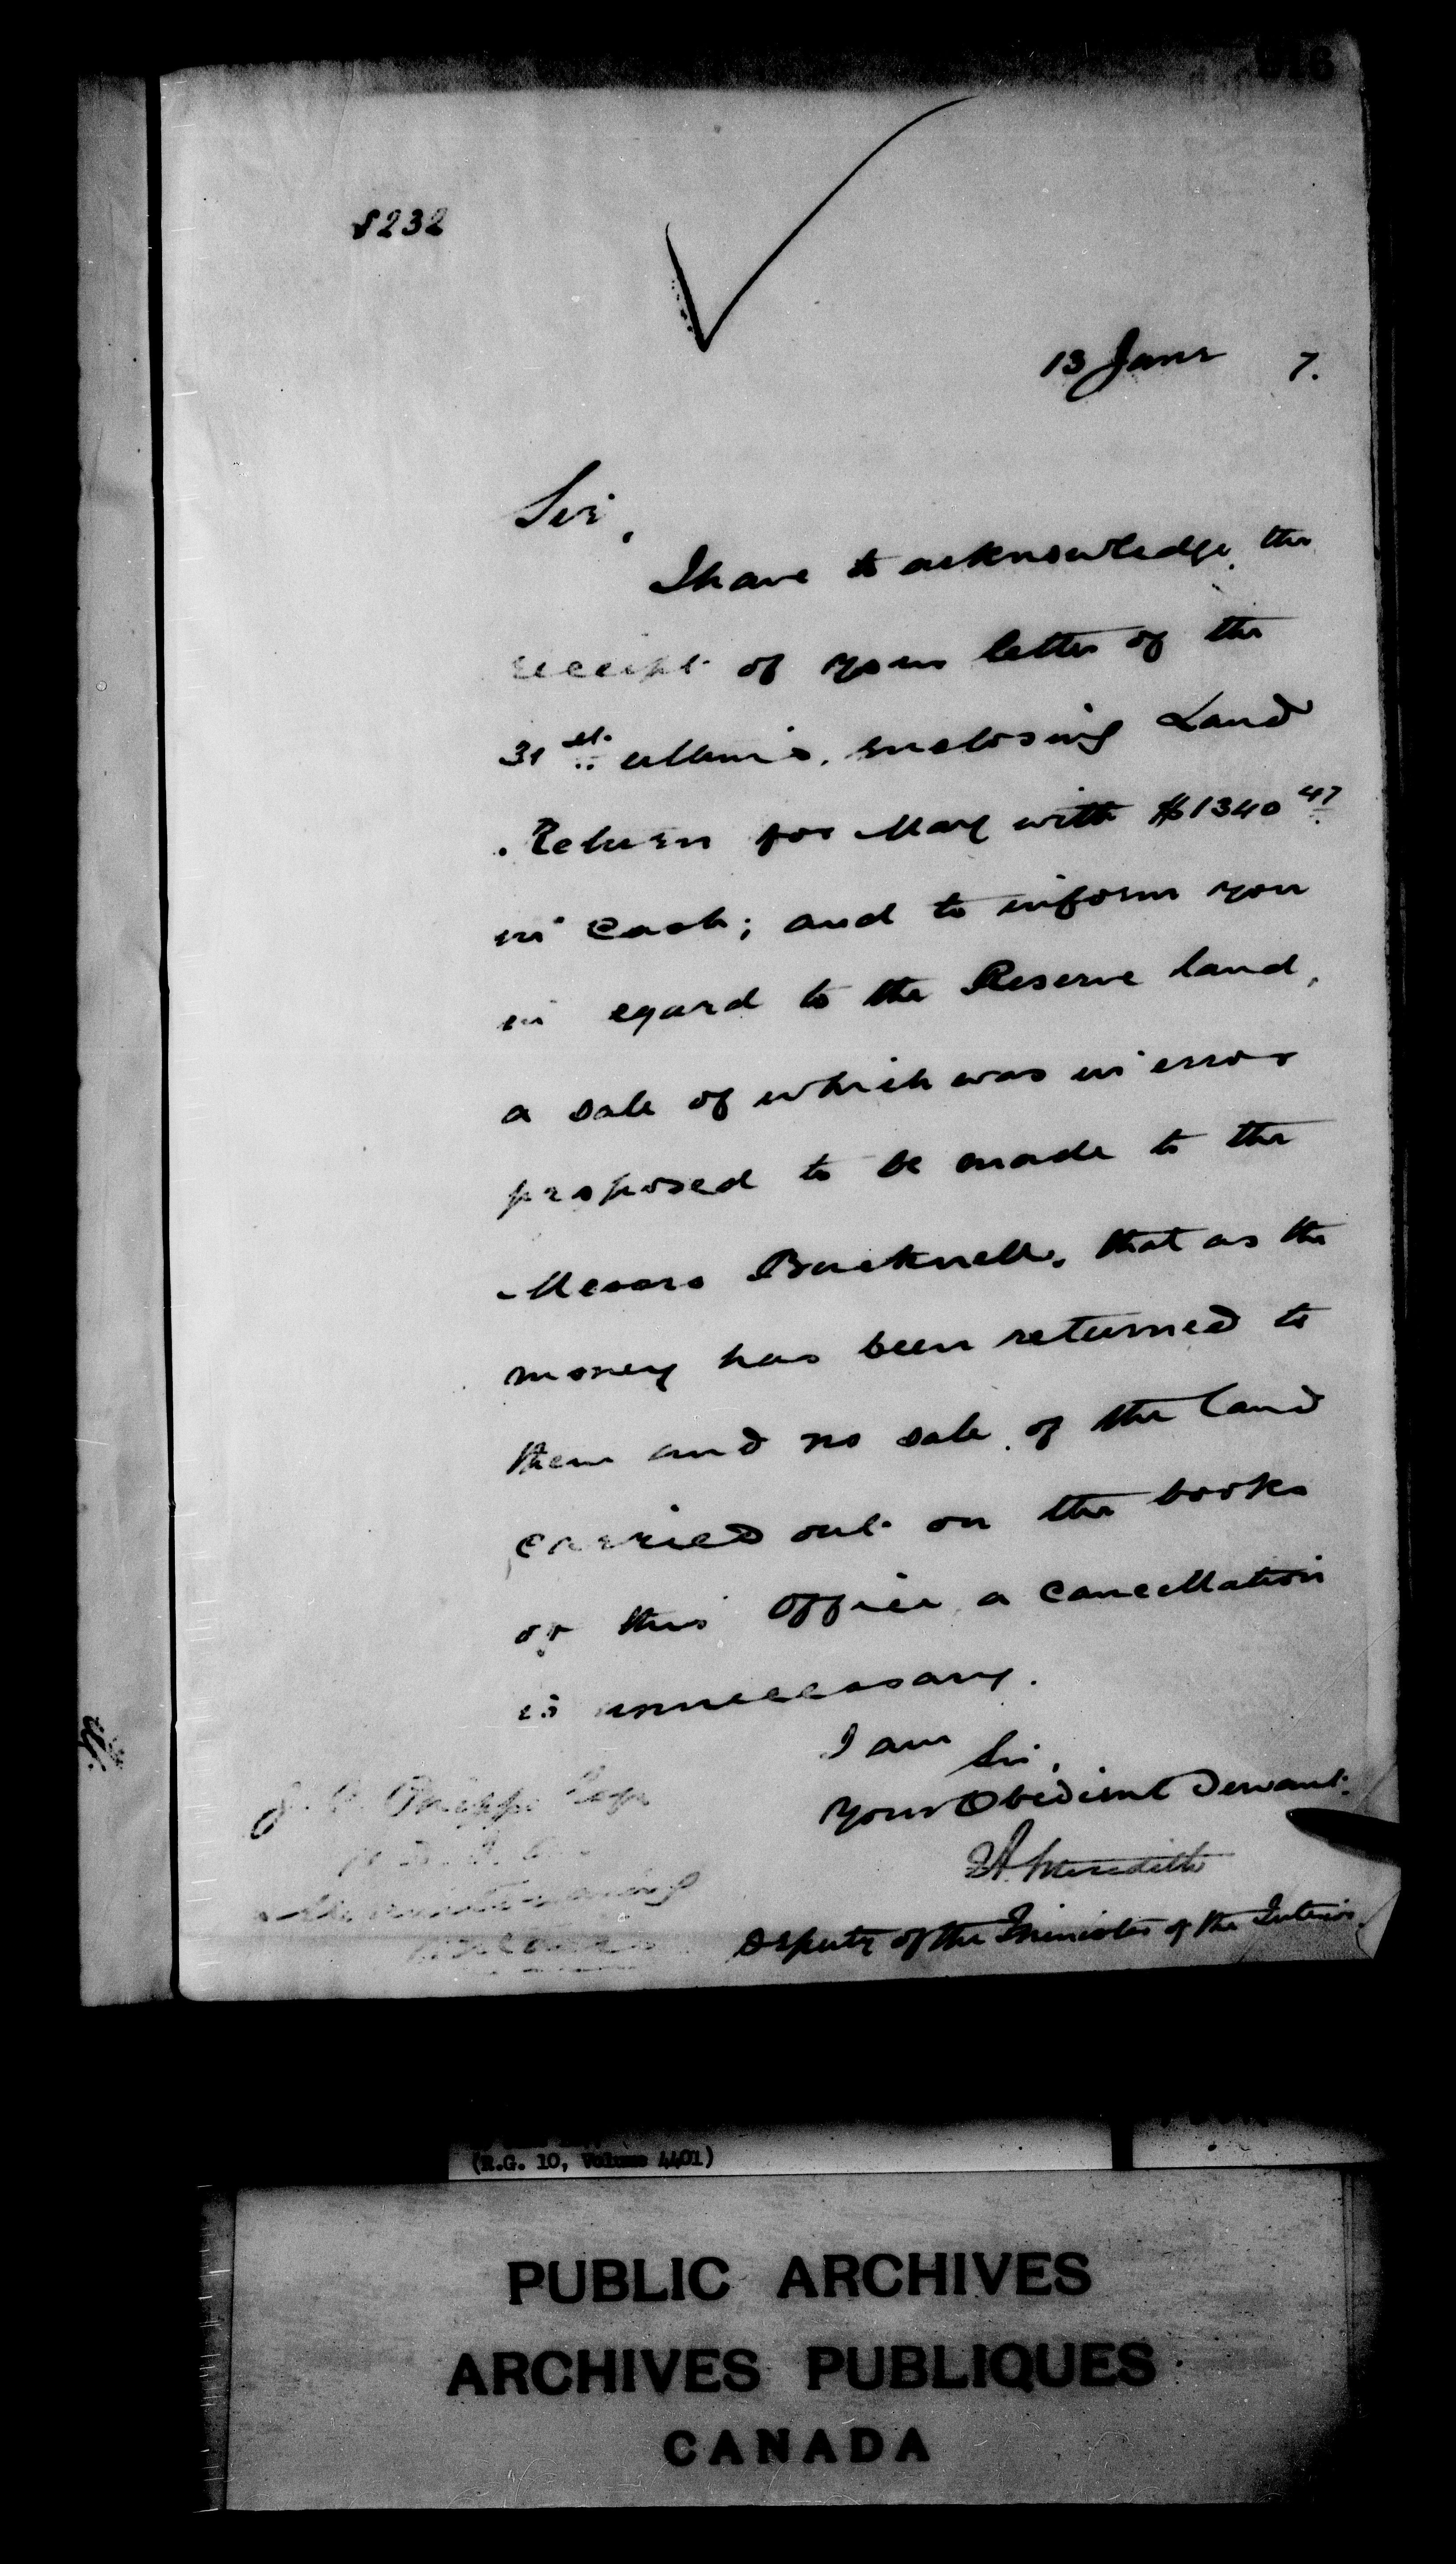 8232
13 June 7.
Sir,
I have to acknowledge the
receipt of your letter of the
31st ultimo, enclosing Land
Return for May with $1340 47
in Cash; and to inform you
in egard to the Reserve land,
a sale of which was in error
proposed to be made to the
Messrs Bucknell, that as the
money has been returned to
them and no sale of the land
carried out on the books
of this Office, a cancellation
is unnecessary.
I am
Sir,
Your Obedient Servant.
J. C. Phipps Esqr
EA Meredith
Deputy of the Minister of the Interior.
(R.G. 10, Volume 4401)
PUBLIC ARCHIVES
ARCHIVES PUBLIQUES
CANADA